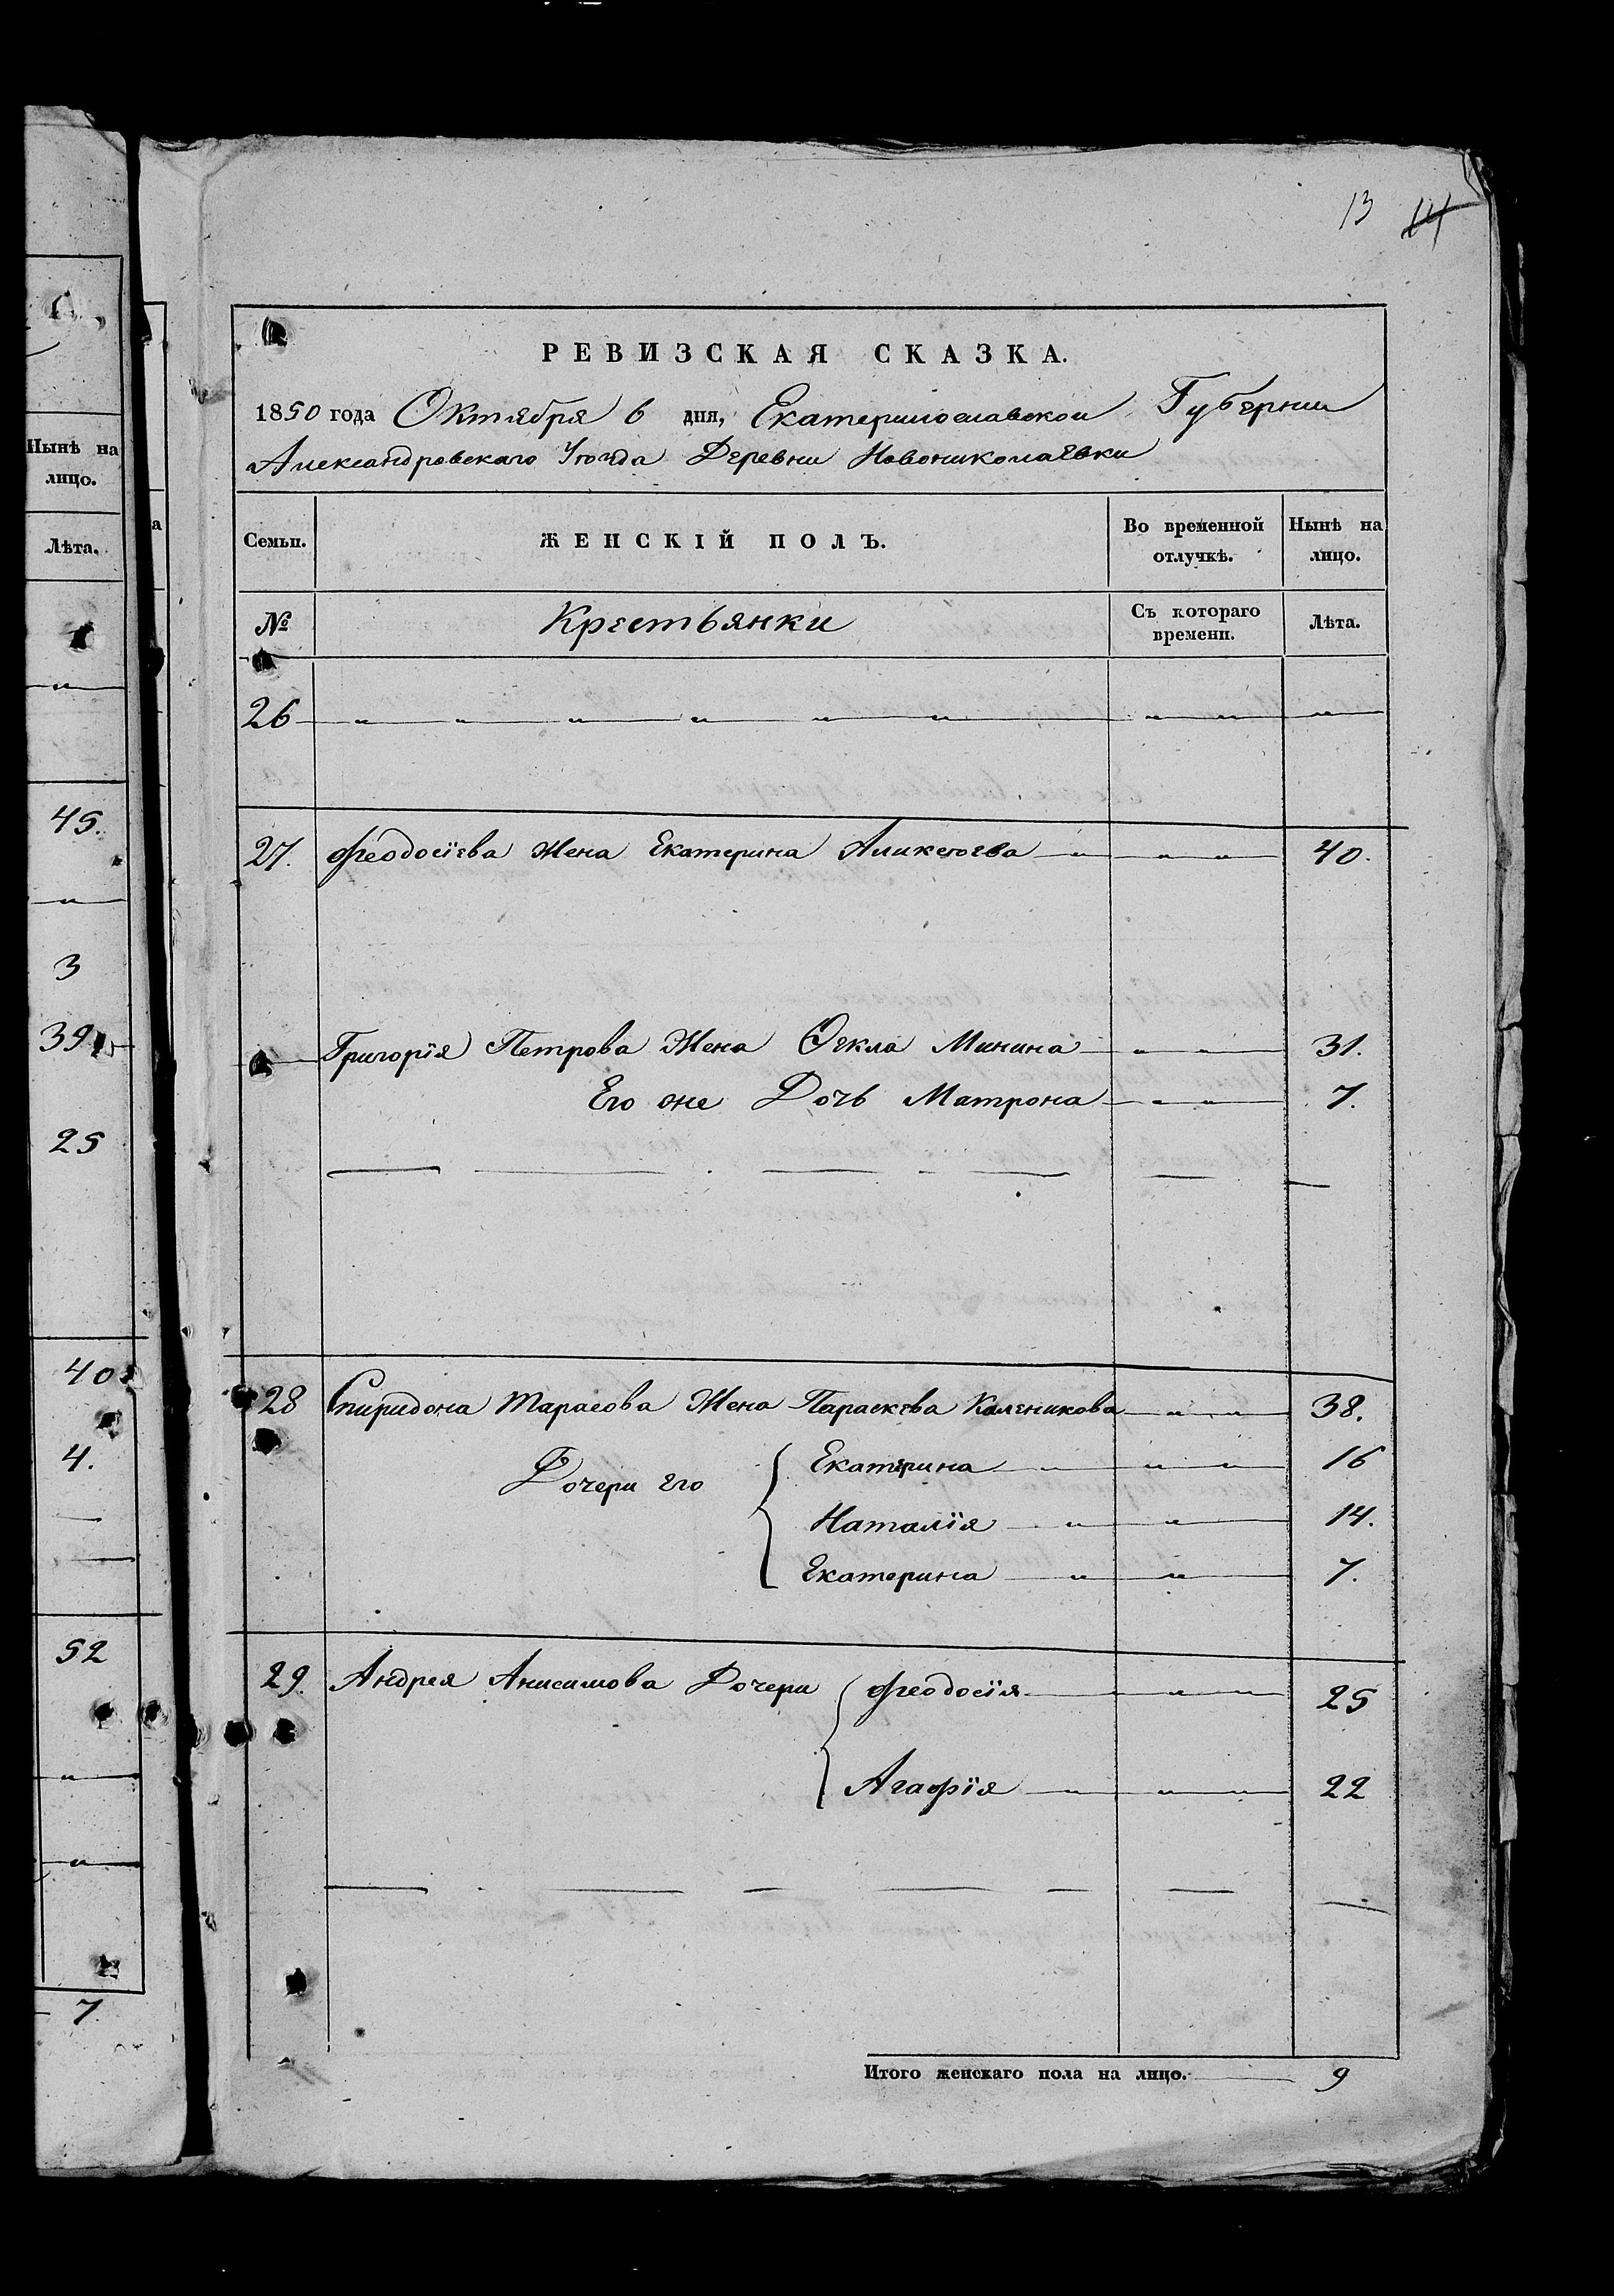 13 14
РЕВИЗСКАЯ СКАЗКА.
1850 года Октября 6 дня, Екатеринославской Губернии
Александровскаго Уѣзда Деревни Новониколаевки
Семьи. ЖЕНСКІЙ ПОЛЪ. Во временной отлучкѣ. Нынѣ на лицо.
№ Крестьянки Съ котораго времени. Лѣта.
26
27. Феодосіева Жена Екатерина Аликсѣева 40.
Григорія Петрова Жена Ѳекла Минина 31.
Его же Дочь Матрона 7.
28 Спиридона Тарасова Жена Параскева Каленикова 38.
Дочери его Екатерина 16
Наталія 14.
Екатерина 7.
29. Андрея Анисимова Дочери Феодосія 25
Агафія 22
Итого женскаго пола на лицо. 9
Нынѣ на
лицо.
Лѣта.
45.
3
39
25
40
4.
52
7